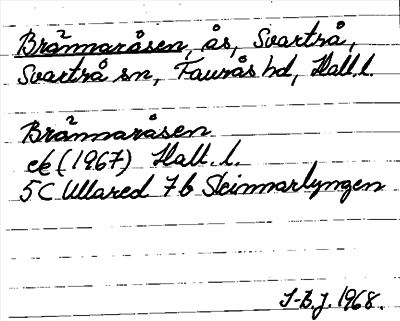 Brännaråsen, ås, Svartrå,
Svartrå sn, Faurås hd, Hall. l.
Brännaråsen
ek (1967) Hall. l.
5C Ullared 7b Steinmarlyngen
I-B.J. 1968.